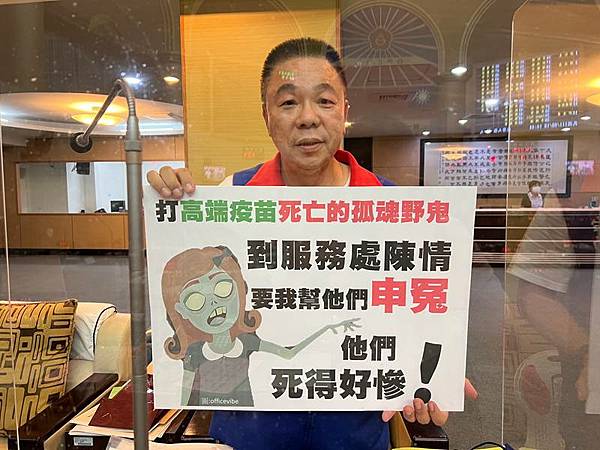 打高端疫苗死亡的孤魂野鬼
到服務處陳情
要我幫他們申冤
他們
死得好慘!
圖:officevibe